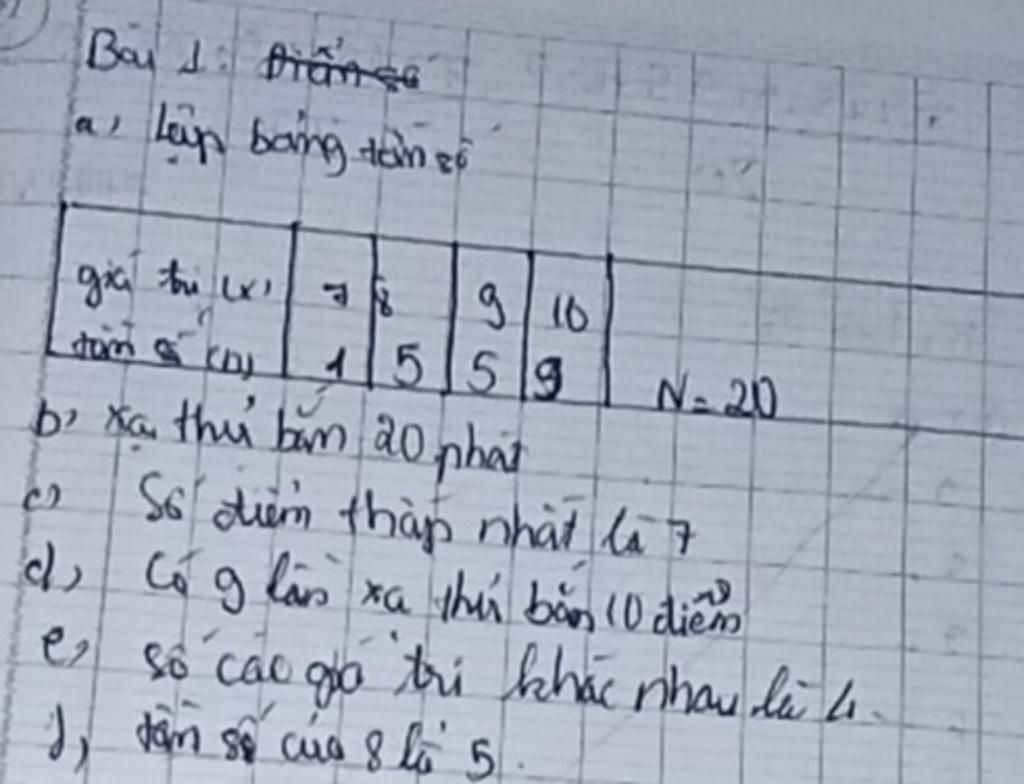 Bài 1: Điểm số
a, lập bảng tần số
giá trị (x) 7 8 9 10
tần số (n) 1 5 5 9 N = 20
b, xạ thủ bắn 20 phát
c) Số điểm thấp nhất là 7
d, Có 9 lần xạ thủ bắn 10 điểm
e, số các giá trị khác nhau là 4.
f, tần số của 8 là 5.